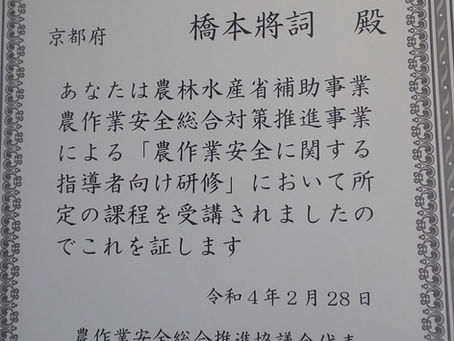 京都府 橋本將詞 殿
あなたは農林水産省補助事業
農作業安全総合対策推進事業
による「農作業安全に関する
指導者向け研修」において所
定の課程を受講されましたの
でこれを証します
令和4年2月28日
農作業安全総合推進協議会代表